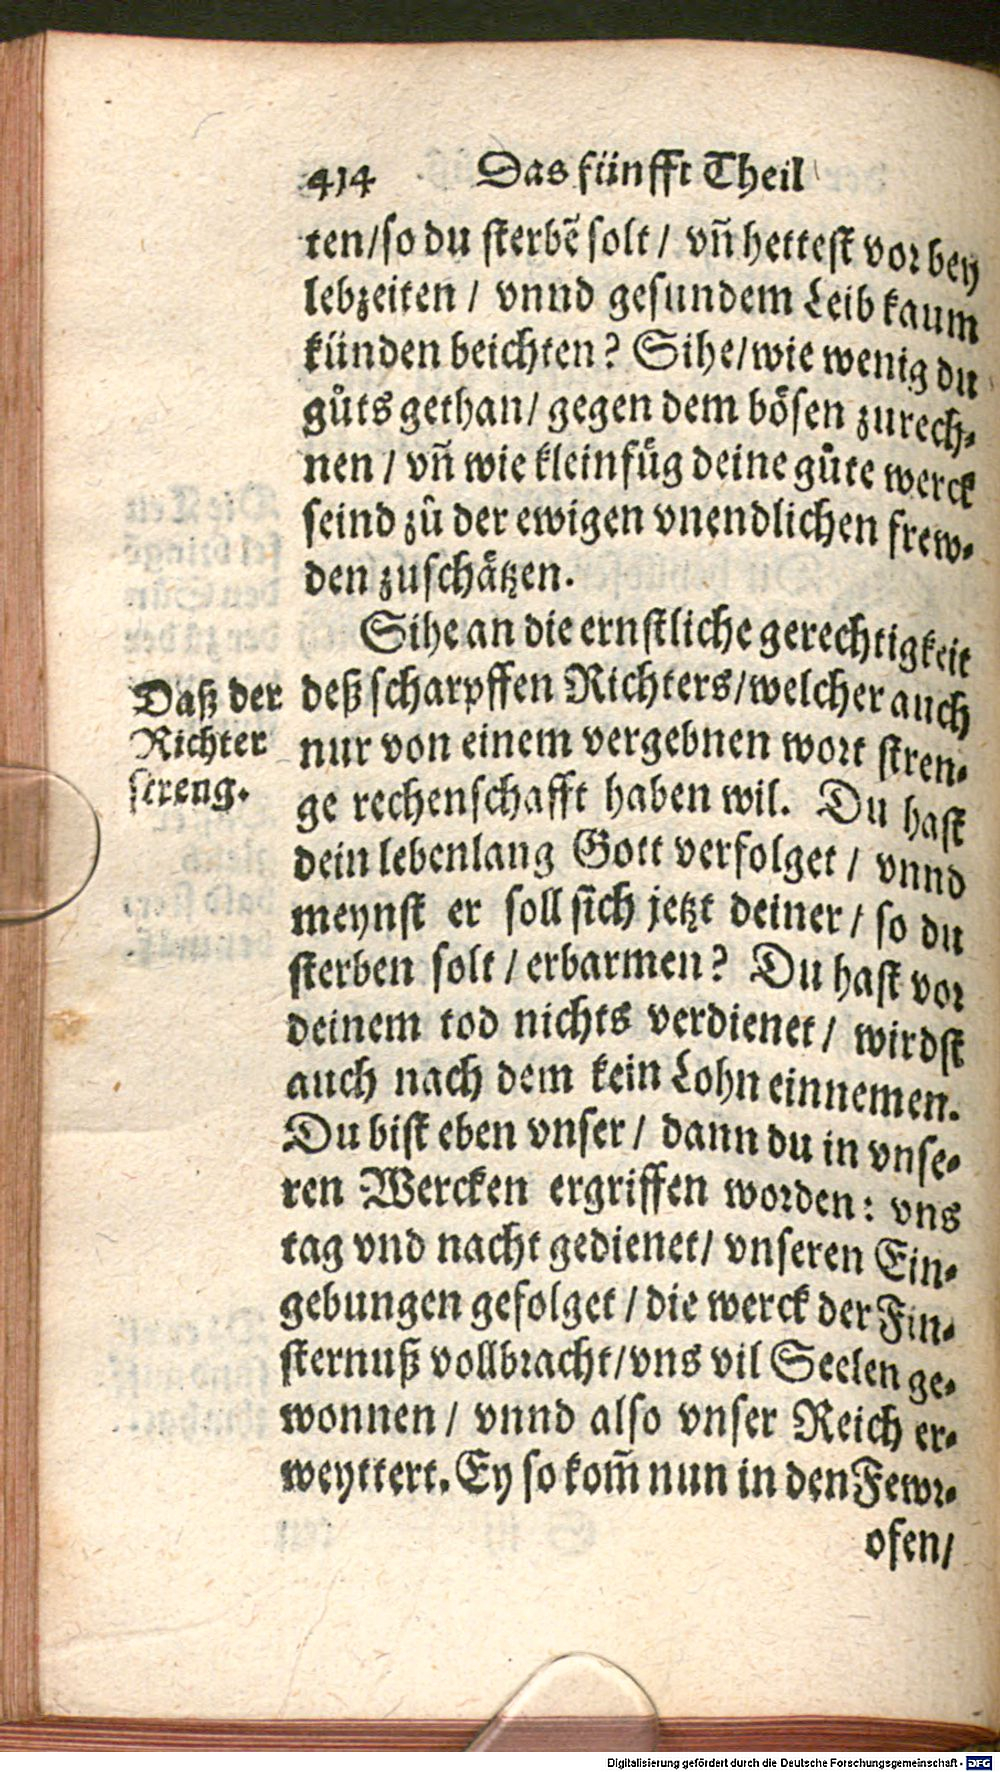 414 Das fünfft Theil
ten/so du sterbẽ solt / vñ hettest vor bey
lebzeiten / vnnd gesundem Leib kaum
künden beichten? Sihe/wie wenig du
gůts gethan/ gegen dem bösen zurech-
nen / vñ wie kleinfüg deine gůte werck
seind zů der ewigen vnendlichen frew-
den zuschätzen.
Sihe an die ernstliche gerechtigkeit
deß scharpffen Richters/welcher auch
nur von einem vergebnen wort stren-
ge rechenschafft haben wil. Du hast
dein lebenlang Gott verfolget / vnnd
meynst er soll sich jetzt deiner / so du
sterben solt / erbarmen? Du hast vor
deinem tod nichts verdienet / wirdst
auch nach dem kein Lohn einnemen.
Du bist eben vnser / dann du in vnse-
ren Wercken ergriffen worden: vns
tag vnd nacht gedienet/ vnseren Ein-
gebungen gefolget / die werck der Fin-
sternuß vollbracht/vns vil Seelen ge-
wonnen / vnnd also vnser Reich er-
weyttert. Ey so kom̃ nun in den Fewr-
ofen/
Daß der
Richter
streng.
Digitalisierung gefördert durch die Deutsche Forschungsgemeinschaft - DFG